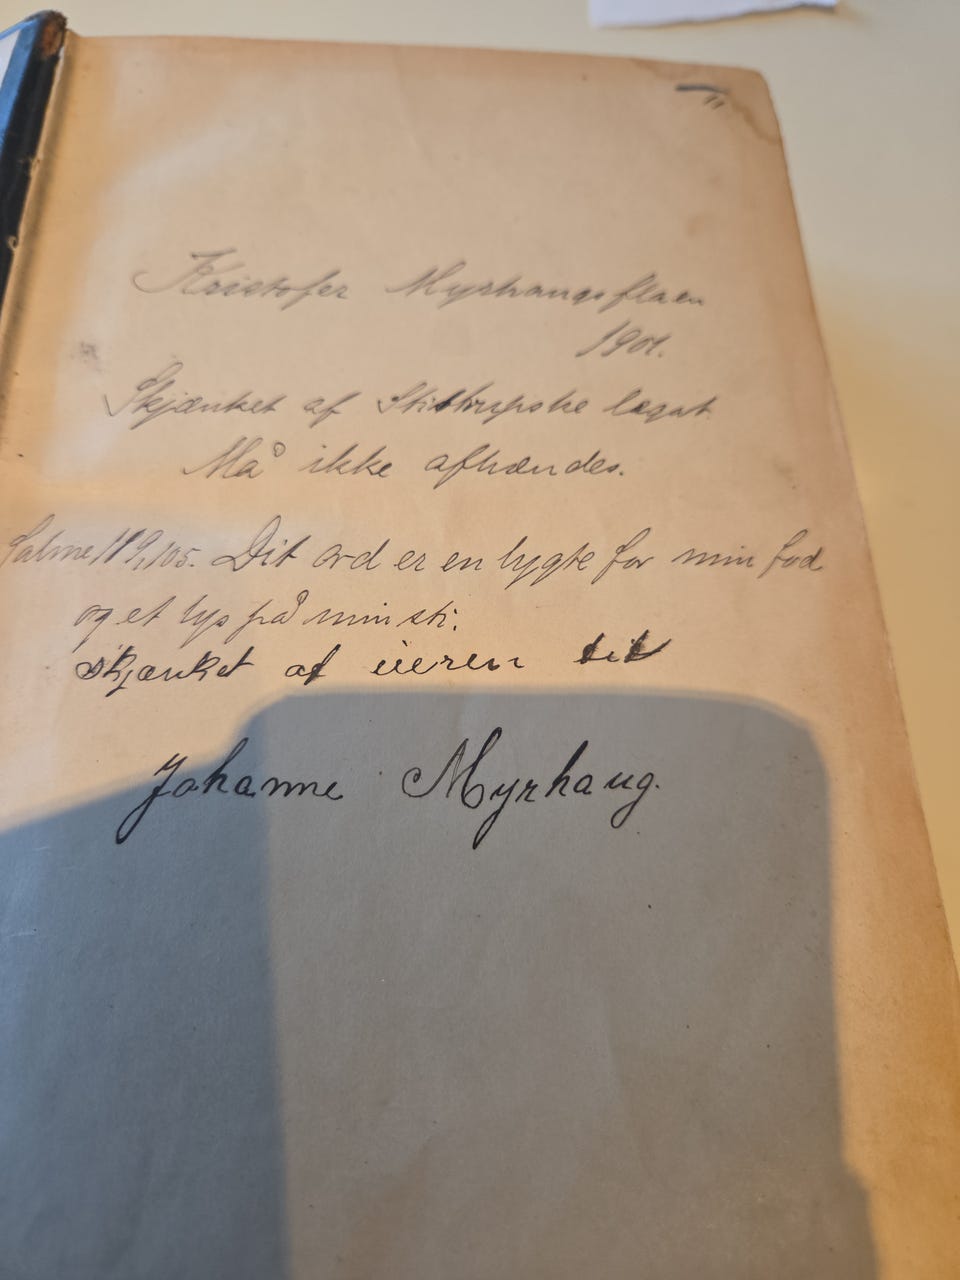 Kristofer Myrhaugsflaen
1901.
Skjænket af Stistrupske legat.
Må ikke afhændes.
Salme 119,105. Dit ord er en lygte for min fod
og et lys på min sti.
skjænket af eieren til
Johanne Myrhaug.